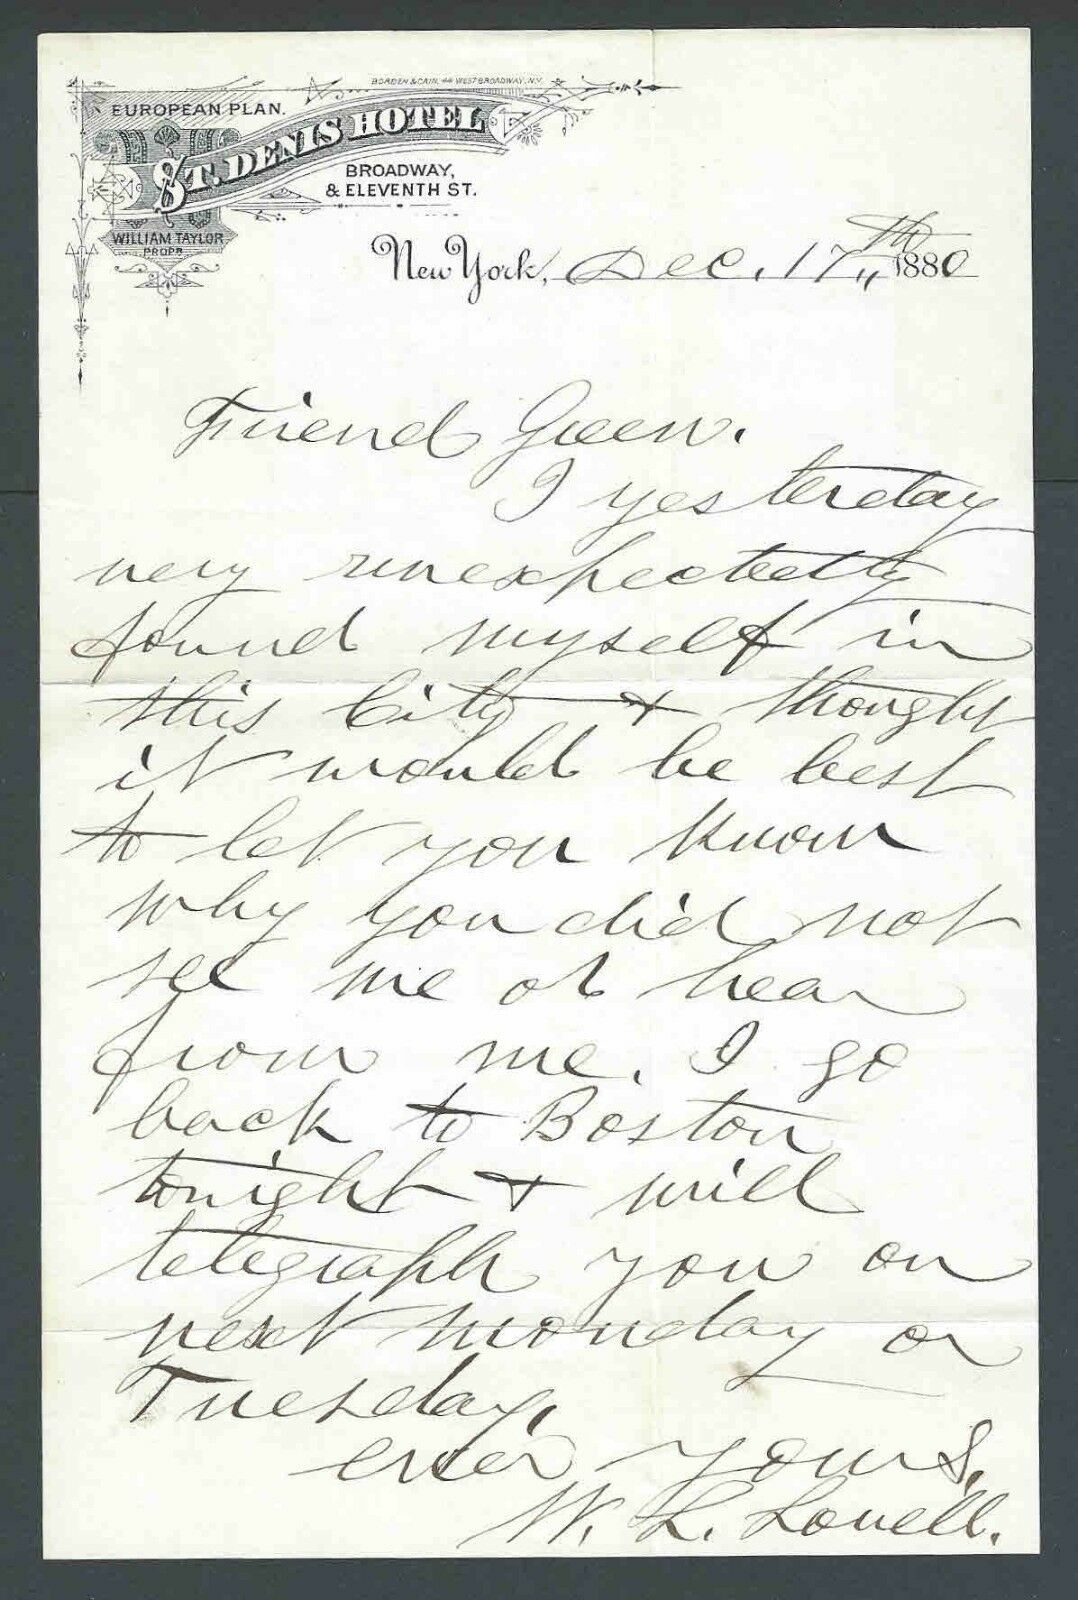 BORDEN & CAIN, 44 WEST BROADWAY, N.Y.
EUROPEAN PLAN.
ST. DENIS HOTEL
BROADWAY,
& ELEVENTH ST.
WILLIAM TAYLOR
PROPR.
New York, Dec. 17th 1880
Friend Green.
I yesterday
very unexpectedly
found myself in
this City & thought
it would be best
to let you know
why you did not
see me or hear
from me. I go
back to Boston
tonight & will
telegraph you on
next monday or
Tuesday.
ever yours,
W. L. Lovell.